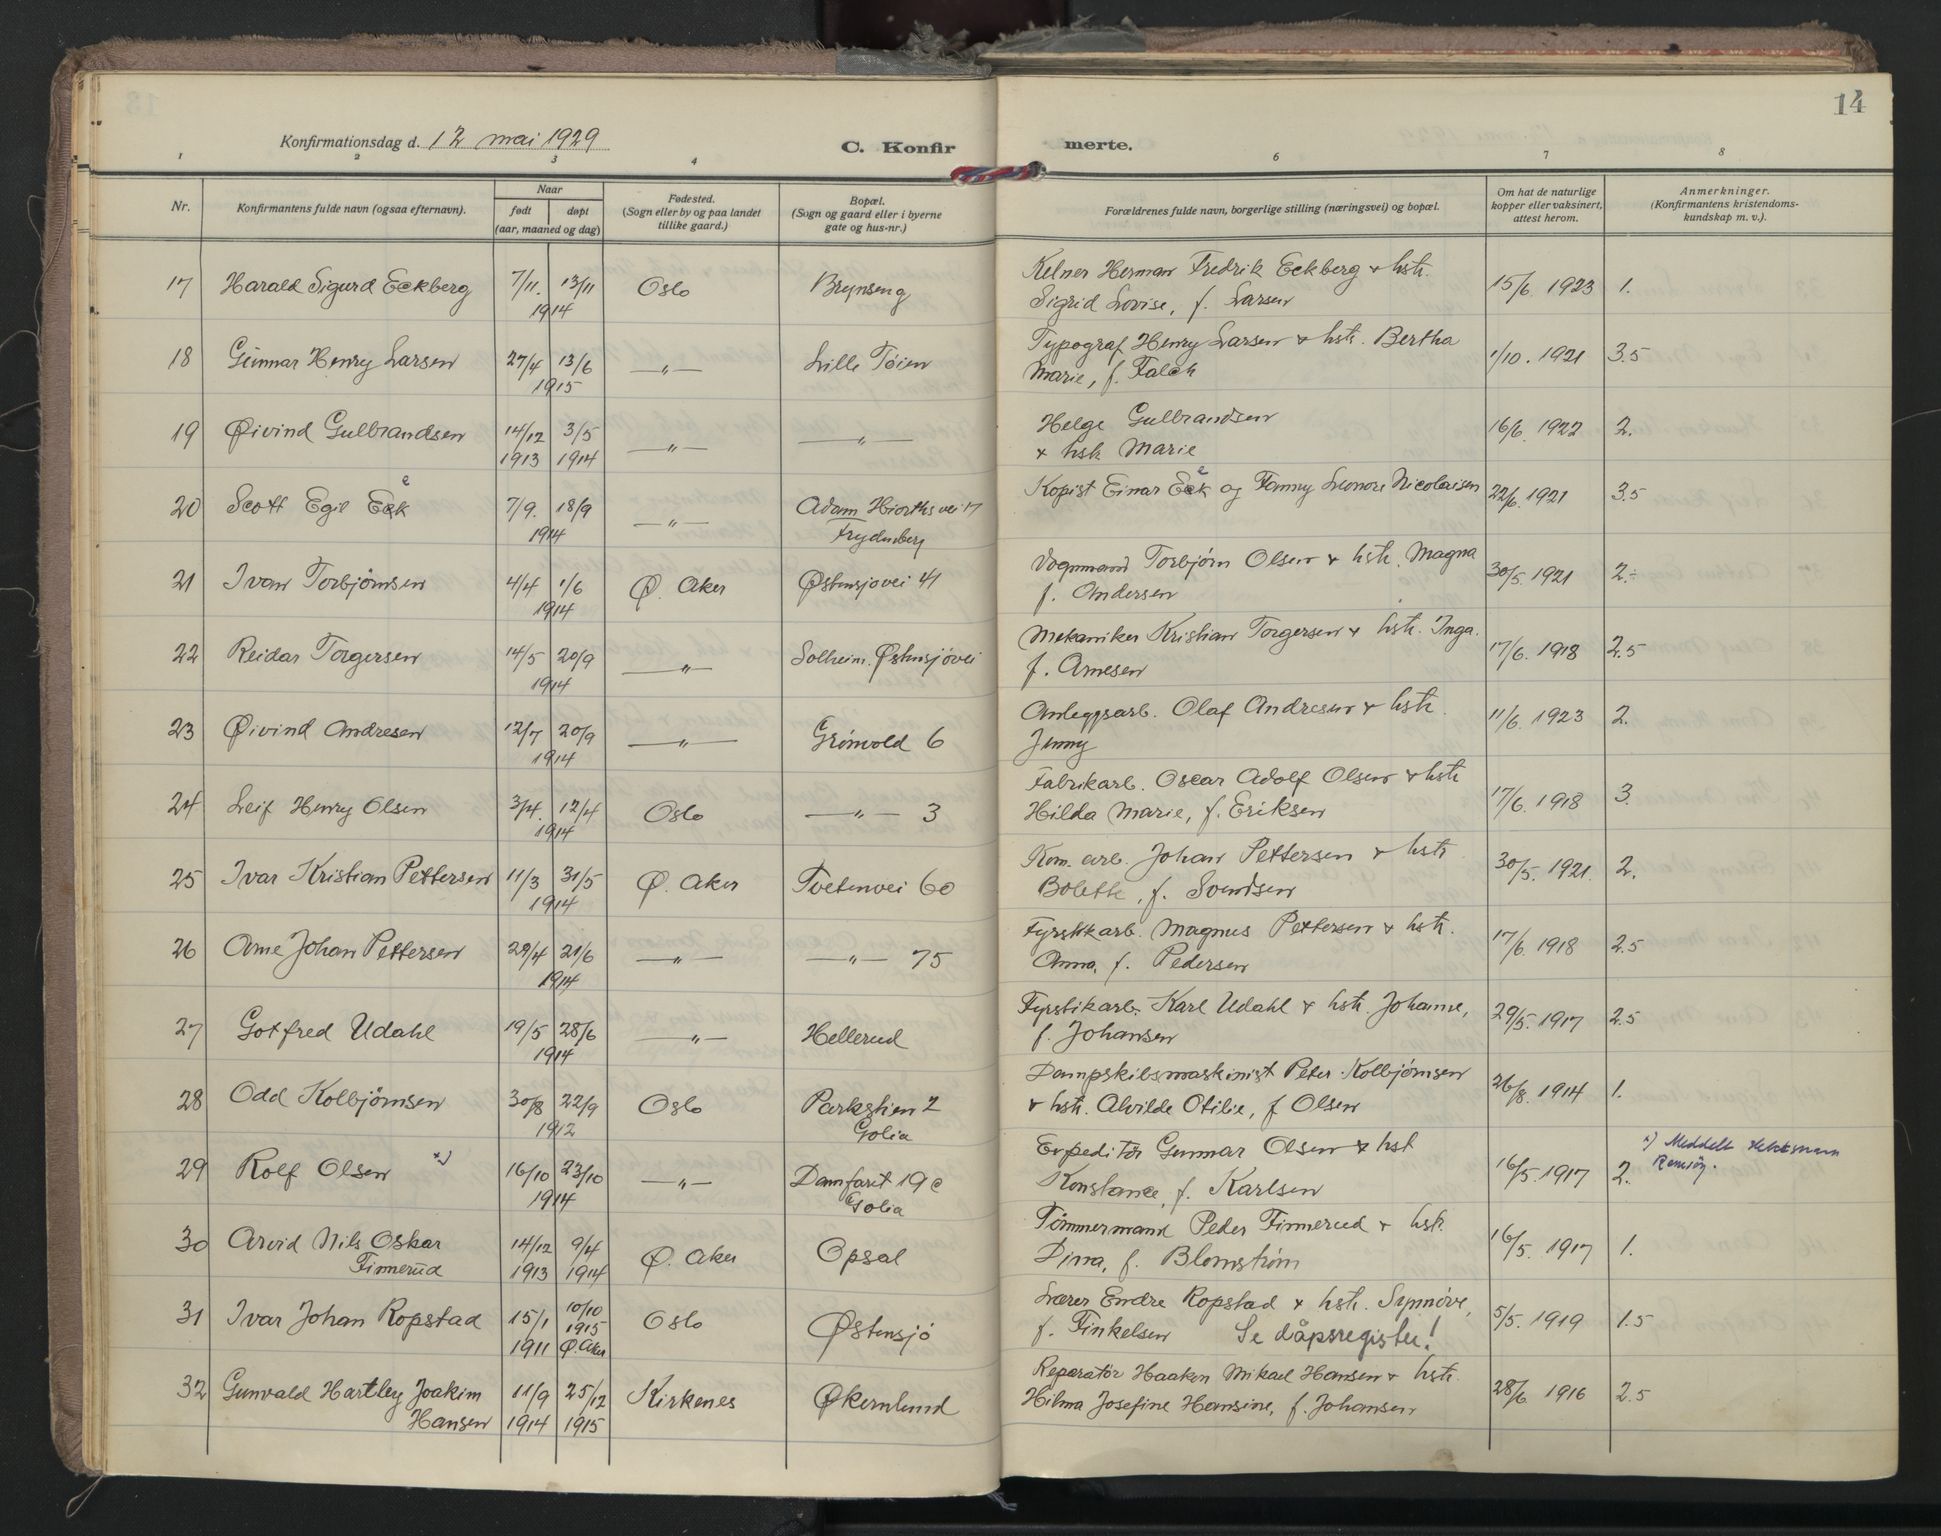 14
Konfirmationsdag d. 12 mai 1929
C. Konfir merte.
1 2 3 4 6 7 8
Nr. Konfirmantens fulde navn (ogsaa efternavn). Naar født døpt (aar, maaned og dag) Fødested. (Sogn eller by og paa landet tillike gaard.) Bopæl. (Sogn og gaard eller i byerne gate og hus-nr.) Forældrenes fulde navn, borgerlige stilling (næringsvei) og bopæl. Om hat de naturlige kopper eller vaksinert, attest herom. Anmerkninger. (Konfirmantens kristendoms-kundskap m. v.).
17 Harald Sigurd Eckberg 7/11. 13/11 1914 Oslo Brynseng Kelner Herman Fredrik Eckberg & hstr. Sigrid Lovise, f. Larsen 15/6 1923 1.
18 Gunnar Henry Larsen 27/4 13/6 1915 —"— Lille Tøien Typograf Henry Larsen & hstr. Bertha Marie, f. Falck 1/10. 1921 3.5
19 Øivind Gulbrandsen 14/12 1913 3/5 1914 —"— —"— Helge Gulbrandsen & hsk Marie 16/6. 1922 2.
20 Scott Egil Eek 7/9. 18/9 1914 —"— Adam Hiorths vei 17 Frydenberg Kopist Einar Eek og Fanny Leonore Nicolaisen 22/6. 1921 3.5
21 Ivan Torbjørnsen 4/4 1/6 1914 Ø. Aker Østensjovei 41 Vognmand Torbjørn Olsen & hstr. Magna f. Andersen 30/5. 1921 2.÷
22 Reidar Torgersen 14/5 20/9 1914 —"— Solheim. Østensjövei Mekaniker Kristian Torgersen & hstr. Inga. f. Arnesen 17/6. 1918 2.5
23 Øivind Andresen 12/7 20/9 1914 —"— Grönvold 6 Anleggsarb. Olaf Andresen & hstr. Jenny 11/6. 1923 2.
24 Leif Henry Olsen 3/4. 12/4 1914 Oslo —"— 3 Fabrikarb. Oscar Adolf Olsen & hstr Hilda Marie, f. Eriksen 17/6. 1918 3.
25 Ivar Kristian Pettersen 11/3 31/5 1914 Ø. Aker Tvetenvei 60 Kom. arb. Johan Pettersen & hstr Bolette, f. Svendsen 30/5. 1921. 2.
26 Arne Johan Pettersen 29/4 21/6 1914 —"— —"— 75 Fyrstikarb. Magnus Pettersen & hstr. Anna, f. Pedersen 17/6. 1918 2.5
27 Gotfred Udahl 19/5 28/6 1914 —"— Hellerud Fyrstikarb. Karl Udahl & hstr. Johanne, f. Johansen 29/5. 1917 2.5
28 Odd Kolbjörnsen 30/8 22/9 1912 Oslo Parkstien 2 Golia Dampskibsmaskinist Peter Kolbjörnsen & hstr. Alvilde Otilie, f Olsen 26/8. 1914 1.
29 Rolf Olsen x) 16/10 23/10 1914 —"— Damfaret 19c Golia Expeditör Gunnar Olsen & hst Konstance, f. Karlsen 16/5. 1917 2. x) Meddelt
30 Arvid Nils Oskar Finnerud 14/12 1913 9/4 1914 Ø. Aker Opsal Tömmermand Peder Finnerud & hsk. Dina, f. Blomström 16/5. 1917 1.
31 Ivar Johan Ropstad 15/1 1911 10/10 1915 Ø. Aker Oslo Østensjö Lærer Endre Ropstad & hstr. Synnöve, f. Finkelsen Se dåpsregister! 5/5. 1919 1.5
32 Gunvald Hartley Joakim Hansen 11/9 1914 25/12 1915 Kirkenes Økernlund Reparatör Haaken Mikael Hansen & hstr. Hilma Josefine Hansine, f. Johansen 28/6. 1916 2.5